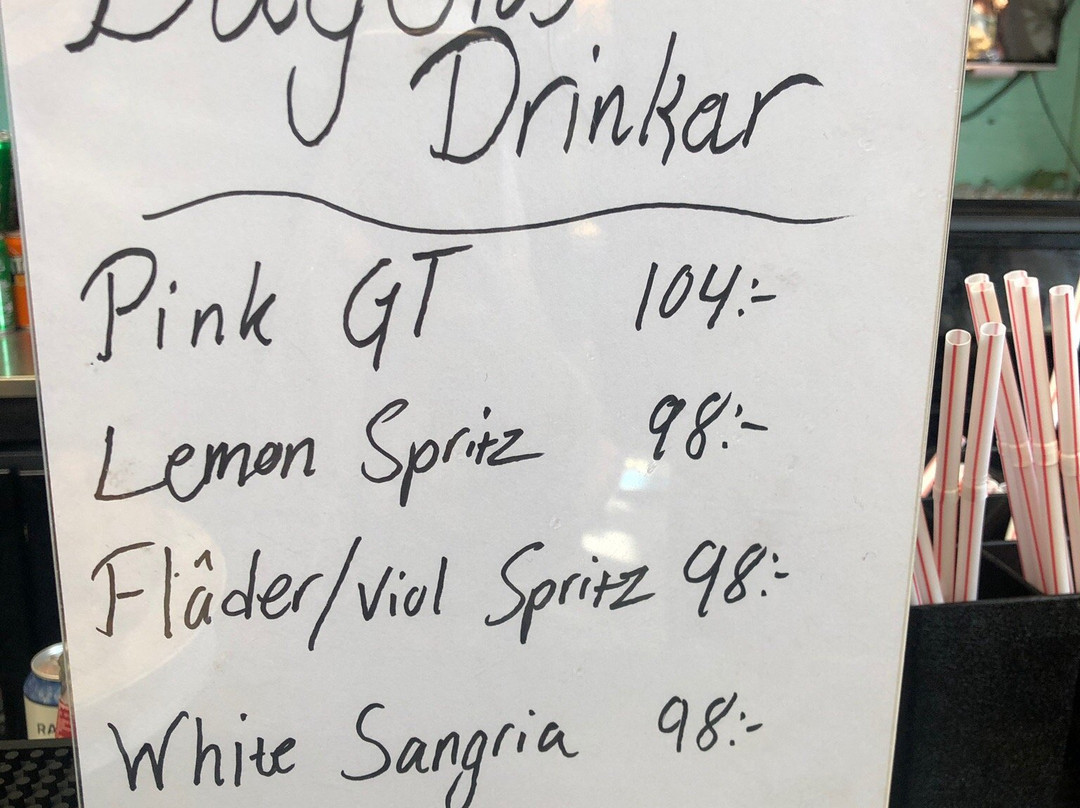 Drinkar
Pink GT 104:-
Lemon Spritz 98:-
Flâder/viol Spritz 98:-
White Sangria 98:-
RA